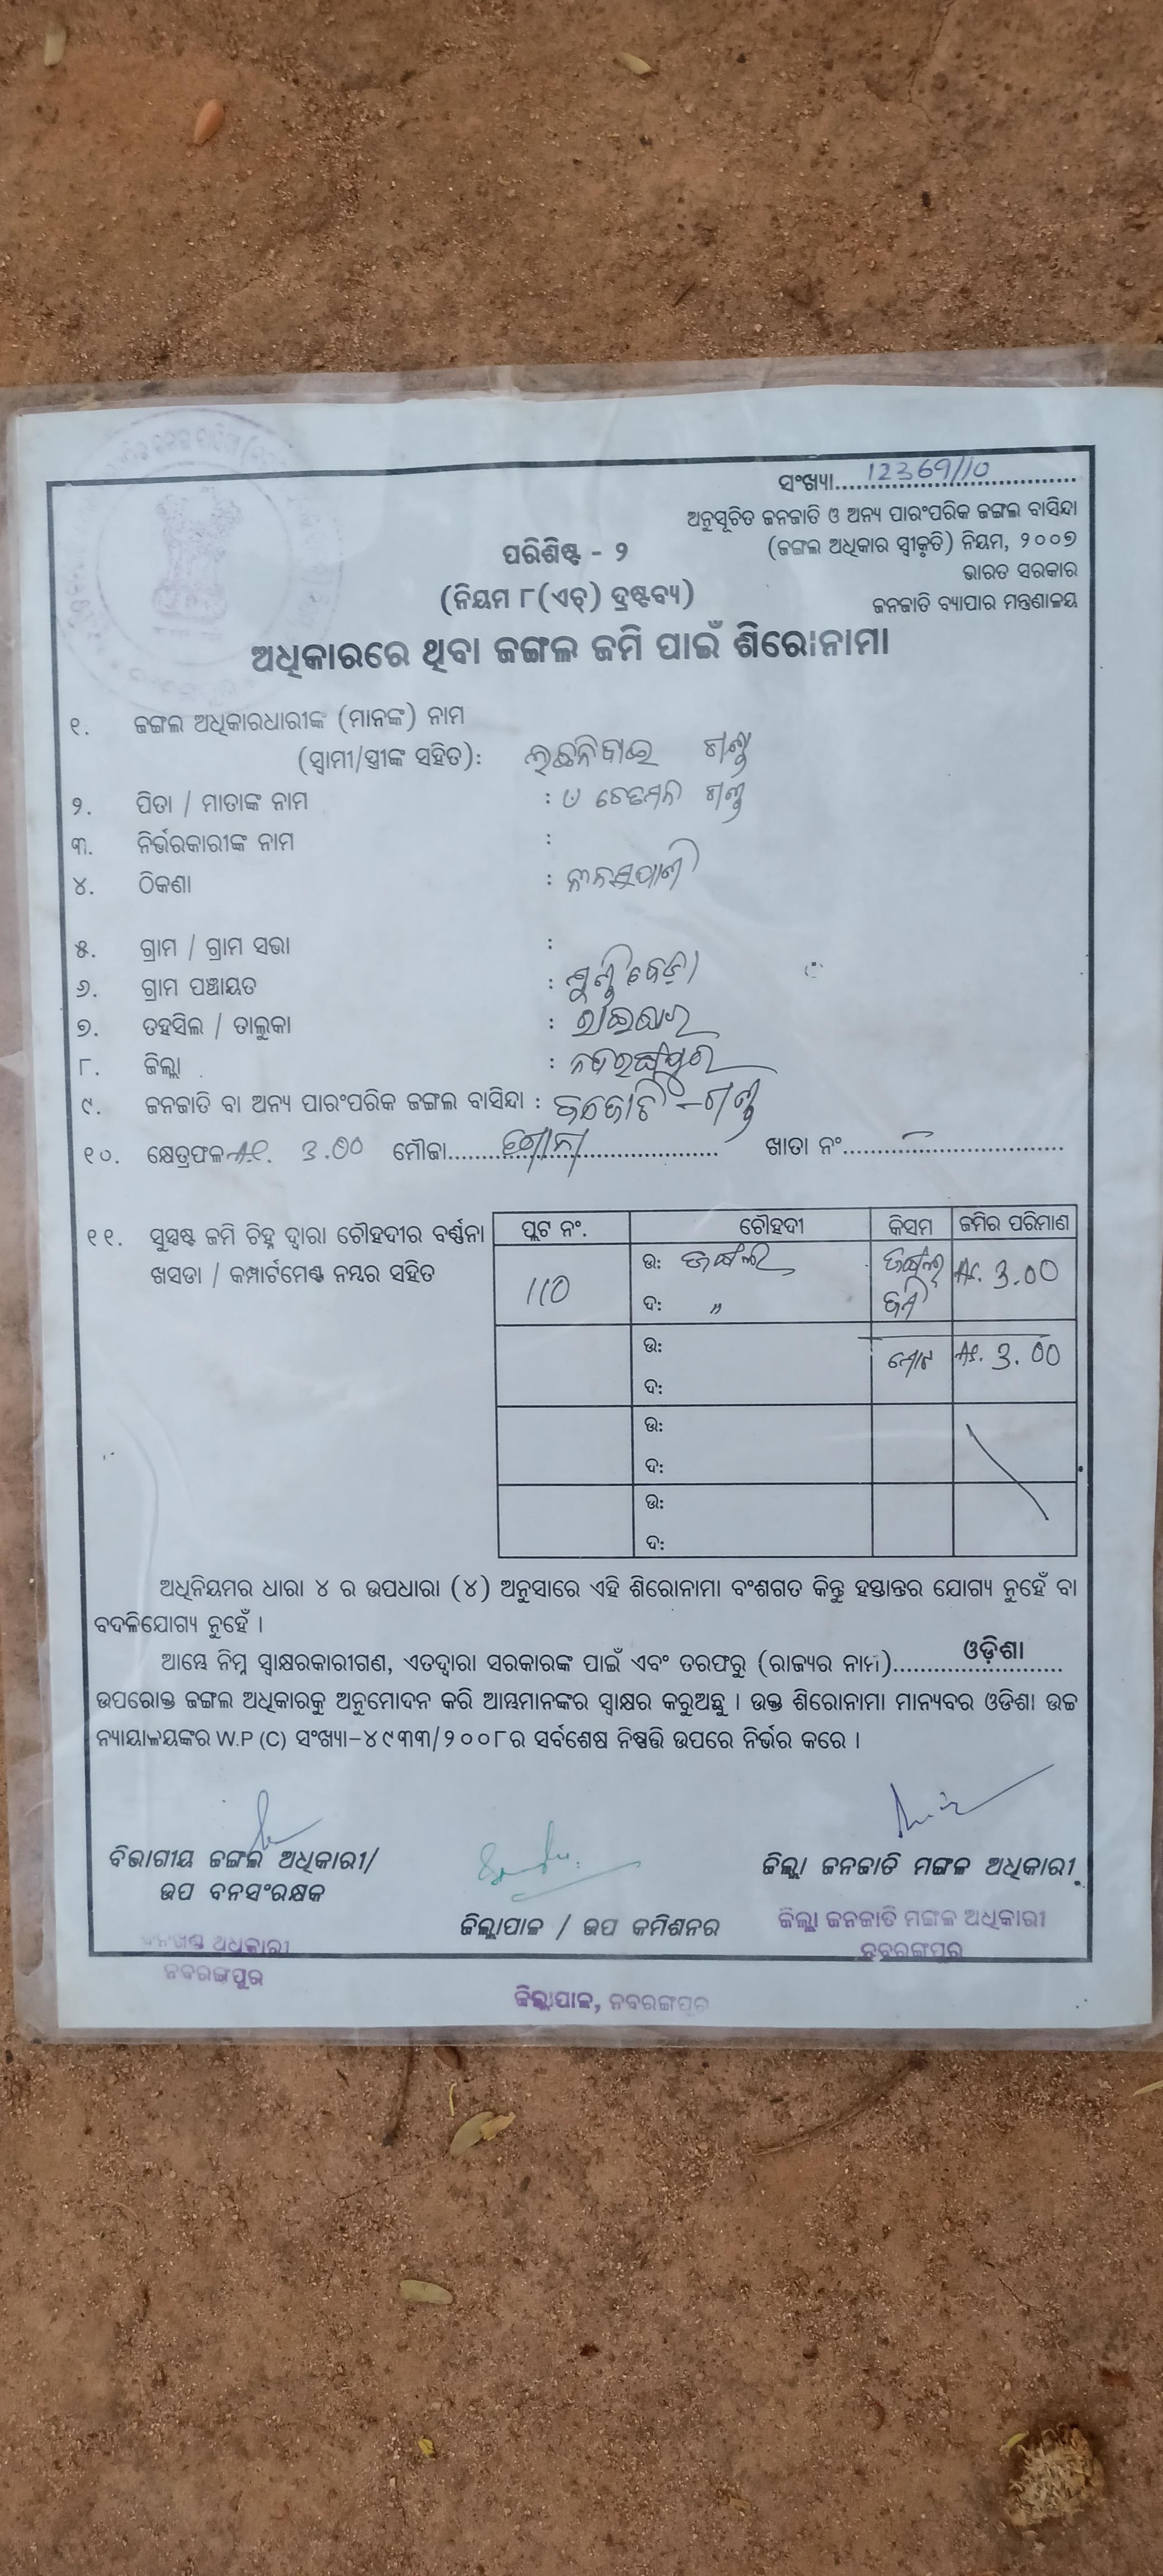 ସଂଖ୍ୟା....12369/10....
ଅନୁସୂଚିତ ଜନଜାତି ଓ ଅନ୍ୟ ପାରଂପରିକ ଜଙ୍ଗଲ ବାସିନ୍ଦା
(ଜଙ୍ଗଲ ଅଧିକାର ସ୍ୱୀକୃତି) ନିୟମ, ୨୦୦୭
ଭାରତ ସରକାର
ଜନଜାତି ବ୍ୟାପାର ମନ୍ତ୍ରଣାଳୟ
ପରିଶିଷ୍ଟ - ୨
(ନିୟମ ୮(ଏଚ୍) ଦ୍ରଷ୍ଟବ୍ୟ)
ଅଧିକାରରେ ଥିବା ଜଙ୍ଗଲ ଜମି ପାଇଁ ଶିରୋନାମା
୧. ଜଙ୍ଗଲ ଅଧିକାରଧାରୀଙ୍କ (ମାନଙ୍କ) ନାମ
(ସ୍ୱାମୀ/ସ୍ତ୍ରୀଙ୍କ ସହିତ): ଲଛନିବାଇ ଗଣ୍ଡ
୨. ପିତା / ମାତାଙ୍କ ନାମ : ଗଣ୍ଡ
୩. ନିର୍ଭରକାରୀଙ୍କ ନାମ :
୪. ଠିକଣା :
୫. ଗ୍ରାମ / ଗ୍ରାମ ସଭା :
୬. ଗ୍ରାମ ପଞ୍ଚାୟତ :
୭. ତହସିଲ / ତାଲୁକା : ରାଇଘର
୮. ଜିଲ୍ଲା : ନବରଙ୍ଗପୁର
୯. ଜନଜାତି ବା ଅନ୍ୟ ପାରଂପରିକ ଜଙ୍ଗଲ ବାସିନ୍ଦା : ଜନଜାତି - ଗଣ୍ଡ
୧୦. କ୍ଷେତ୍ରଫଳ Ac. 3.00 ମୌଜା........ ଖାତା ନଂ........
୧୧. ସୁସ୍ପଷ୍ଟ ଜମି ଚିହ୍ନ ଦ୍ୱାରା ଚୌହଦୀର ବର୍ଣ୍ଣନା
ଖସଡା / କମ୍ପାର୍ଟମେଣ୍ଟ ନମ୍ବର ସହିତ
ପ୍ଲଟ ନଂ. ଚୌହଦୀ କିସମ ଜମିର ପରିମାଣ
110 ଉ: ଜଙ୍ଗଲ ଜଙ୍ଗଲ Ac. 3.00
ଦ: " ଜମି
ଉ: ମୋଟ Ac. 3.00
ଦ:
ଉ:
ଦ:
ଉ:
ଦ:
ଅଧିନିୟମର ଧାରା ୪ ର ଉପଧାରା (୪) ଅନୁସାରେ ଏହି ଶିରୋନାମା ବଂଶଗତ କିନ୍ତୁ ହସ୍ତାନ୍ତର ଯୋଗ୍ୟ ନୁହେଁ ବା
ବଦଳିଯୋଗ୍ୟ ନୁହେଁ ।
ଆମ୍ଭେ ନିମ୍ନ ସ୍ୱାକ୍ଷରକାରୀଗଣ, ଏତଦ୍ଵାରା ସରକାରଙ୍କ ପାଇଁ ଏବଂ ତରଫରୁ (ରାଜ୍ୟର ନାମ)....ଓଡ଼ିଶା....
ଉପରୋକ୍ତ ଜଙ୍ଗଲ ଅଧିକାରକୁ ଅନୁମୋଦନ କରି ଆମ୍ଭମାନଙ୍କର ସ୍ୱାକ୍ଷର କରୁଅଛୁ । ଉକ୍ତ ଶିରୋନାମା ମାନ୍ୟବର ଓଡିଶା ଉଚ୍ଚ
ନ୍ୟାୟାଳୟଙ୍କର W.P (C) ସଂଖ୍ୟା-୪୯୩୩/୨୦୦୮ର ସର୍ବଶେଷ ନିଷ୍ପତ୍ତି ଉପରେ ନିର୍ଭର କରେ ।
ବିଭାଗୀୟ ଜଙ୍ଗଲ ଅଧିକାରୀ/
ଉପ ବନସଂରକ୍ଷକ
ଜିଲ୍ଲାପାଳ / ଉପ କମିଶନର
ଜିଲ୍ଲା ଜନଜାତି ମଙ୍ଗଳ ଅଧିକାରୀ
ଜିଲ୍ଲା ଜନଜାତି ମଙ୍ଗଳ ଅଧିକାରୀ
ନବରଙ୍ଗପୁର
ଅଧିକାରୀ
ନବରଙ୍ଗପୁର
ଜିଲ୍ଲାପାଳ, ନବରଙ୍ଗପୁର